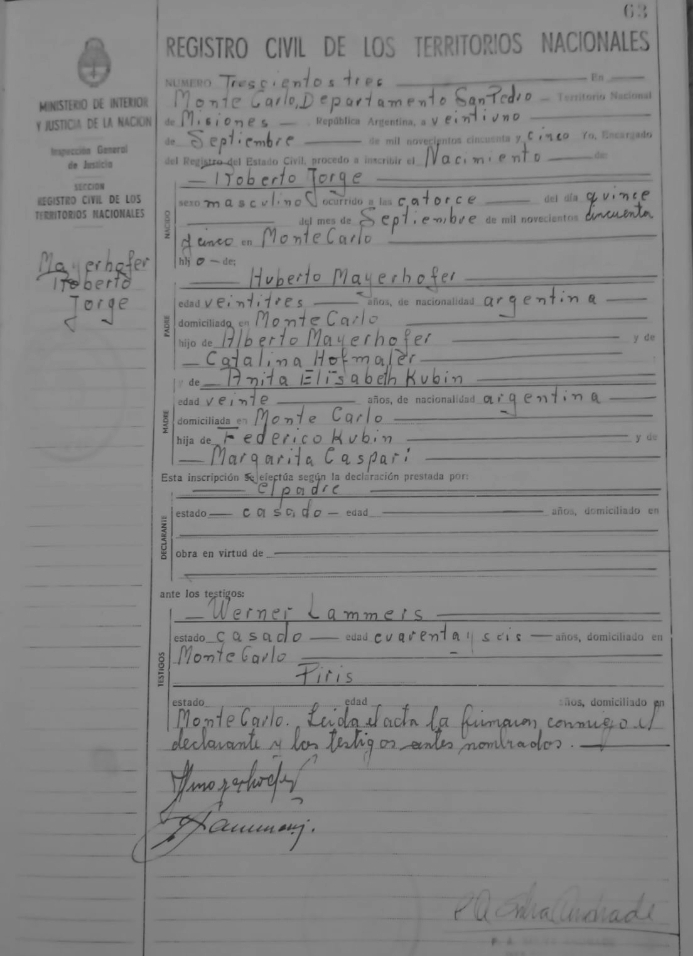 63
REGISTRO CIVIL DE LOS TERRITORIOS NACIONALES
MINISTERIO DE INTERIOR
Y JUSTICIA DE LA NACION
Inspección General
de Justicia
SECCION
REGISTRO CIVIL DE LOS
TERRITORIOS NACIONALES
Mayerhofer
Roberto
Jorge
NUMERO Trescientos tres En
Monte Carlo, Departamento San Pedro Territorio Nacional
de Misiones República Argentina, a veintiuno
de Septiembre de mil novecientos cincuenta y cinco Yo, Encargado
del Registro del Estado Civil, procedo a inscribir el Nacimiento de:
NACIDO
Roberto Jorge
sexo masculino ocurrido a las catorce del día quince
del mes de Septiembre de mil novecientos cincuenta
y cinco en Monte Carlo
hijo de:
PADRE
Huberto Mayerhofer
edad veintitres años, de nacionalidad argentina
domiciliado en Monte Carlo
hijo de Alberto Mayerhofer y de
Catalina Hofmajer
y de Anita Elisabeth Kubin
MADRE
edad veinte años, de nacionalidad argentina
domiciliada en Monte Carlo
hija de Federico Kubin y de
Margarita Caspari
Esta inscripción se efectúa según la declaración prestada por:
DECLARANTE
el padre
estado casado edad años, domiciliado en
obra en virtud de
ante los testigos:
TESTIGOS
Werner Lammers
estado casado edad cuarenta y seis años, domiciliado en
Monte Carlo
Piris
estado edad años, domiciliado en
Monte Carlo. Leida el acta la firmaron conmigo el
declarante y los testigos antes nombrados.